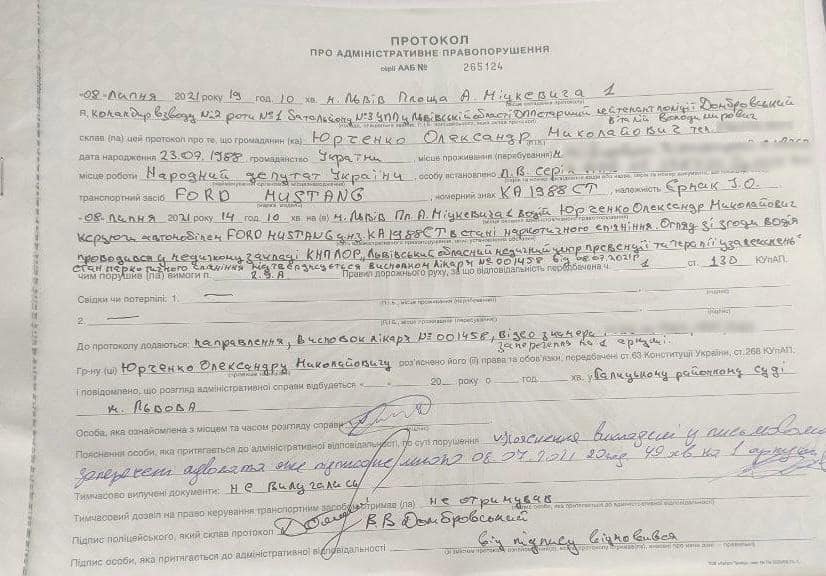 ПРОТОКОЛ
ПРО АДМІНІСТРАТИВНЕ ПРАВОПОРУШЕННЯ
серії ААБ № 265124
"08" Липня 2021 року 19 год. 10 хв. м. Львів Площа А. Міцкевича 1
Я, командир взводу №2 роти №1 батальйону №3 УПП у Львівській області ДПП старший лейтенант поліції Домбровський
Віталій Володимирович
склав (ла) цей протокол про те, що громадянин (ка) Юрченко Олександр Миколайович тел.
дата народження 23.09.1988 громадянство України, місце проживання (перебування)
місце роботи Народний депутат України, особу встановлено П.В. серія
транспортний засіб FORD MUSTANG, номерний знак КА1988СТ, належність Єрмак І.О.
"08" Липня 2021 року 14 год. 10 хв. на (в) м. Львів Пл. А. Міцкевича 1 водій Юрченко Олександр Миколайович
керував автомобілем FORD MUSTANG днз. КА1988СТ в стані наркотичного сп'яніння. Огляд зі згоди водія
проводився у медичному закладі КНП ЛОР "Львівський обласний медичний центр превенції та терапії узалежнень"
стан наркотичного сп'яніння підтверджується висновком лікаря №001458 від 08.07.2021р.
чим порушив (ла) вимоги п. 2.9.А Правил дорожнього руху, за що відповідальність передбачена ч. 1 ст. 130 КУпАП.
Свідки чи потерпілі: 1.
(П.І.Б., місце проживання (перебування) (підпис)
2.
(П.І.Б., місце проживання (перебування) (підпис)
До протоколу додаються: направлення, висновок лікаря №001458, відео з камери
заперечення на 1 аркуші.
Гр-ну (ці) Юрченко Олександру Миколайовичу роз'яснено його (її) права та обов'язки, передбачені ст.63 Конституції України, ст.268 КУпАП.
і повідомлено, що розгляд адміністративної справи відбудеться " " 20 року о год. хв. у Галицькому районному суді
м. Львова
Особа, яка ознайомлена з місцем та часом розгляду справи
Пояснення особи, яка притягається до адміністративної відповідальності, по суті порушення пояснення викладені у письмовому
запереченні адвоката 08.07.2021 20 год 49 хв на 1 аркуші
Тимчасово вилучені документи: не вилучались
Тимчасовий дозвіл на право керування транспортним засобом отримав (ла) не отримував
Підпис поліцейського, який склав протокол В В Домбровський
Підпис особи, яка притягається до адміністративної відповідальності від підпису відмовився